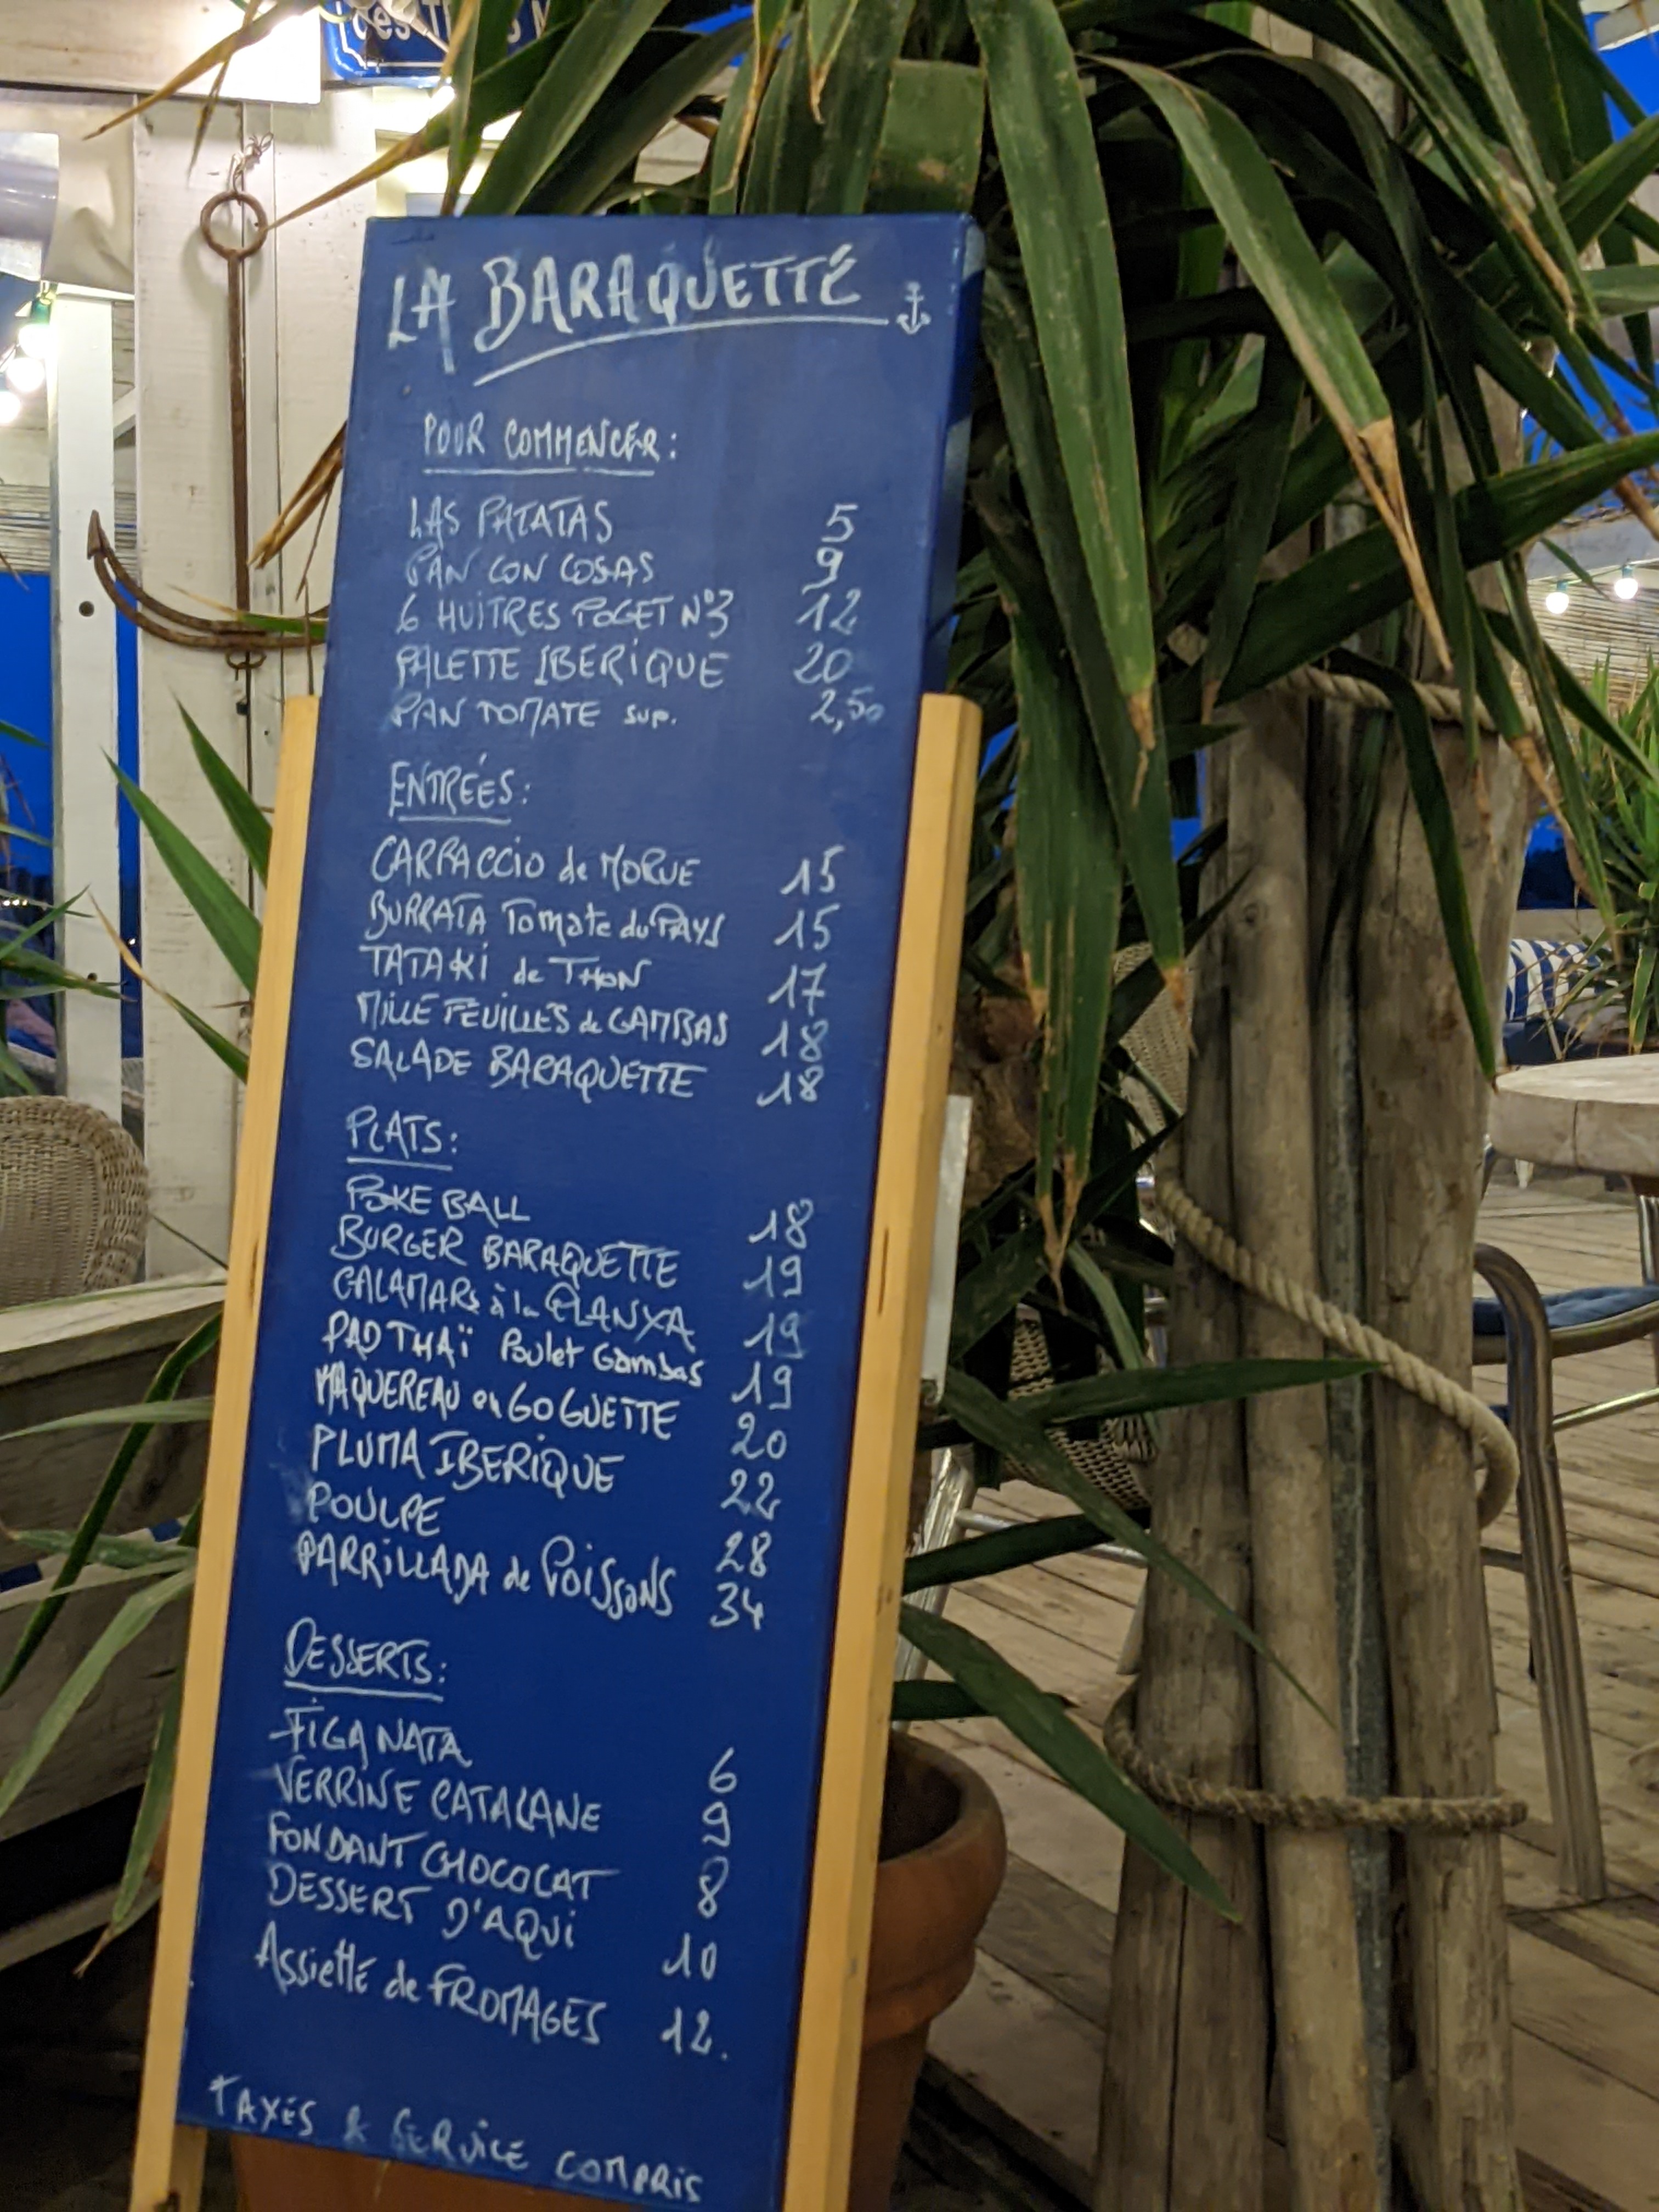 Ces T
LA BARAQUETTE
POUR COMMENCER:
LAS PATATAS 5
PAN CON COSAS 9
6 HUITRES POGET N°3 12
PALETTE IBERIQUE 20
PAN TOMATE SUP. 2,50
ENTRÉES:
CARPACCIO de MORUE 15
BURRATA Tomate du PAYS 15
TATAKI de THON 17
MILLE FEUILLES de GAMBAS 18
SALADE BARAQUETTE 18
PLATS:
POKE BALL 18
BURGER BARAQUETTE 19
CALAMARS à la PLANXA 19
PAD THAÏ Poulet Gambas 19
MAQUEREAU en GOGUETTE 20
PLUMA IBERIQUE 22
POULPE 28
PARRILLADA de POISSONS 34
DESSERTS:
FIGA NATA 6
VERRINE CATALANE 9
FONDANT CHOCOLAT 8
DESSERT D'AQUI 10
Assiette de FROMAGES 12.
TAXES & SERVICE COMPRIS